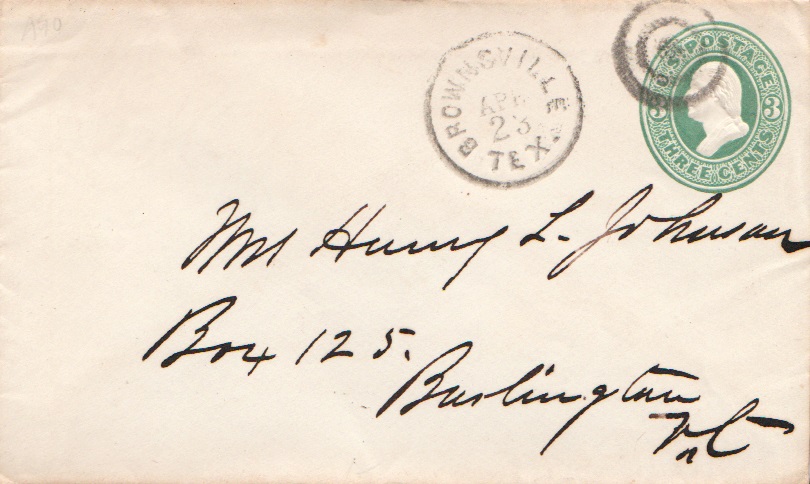 A90
BROWNSVILLE
APR
23
TEX.
U.S. POSTAGE
3 3
THREE CENTS
Mrs Henry L. Johnson
Box 125.
Burlington
Vt